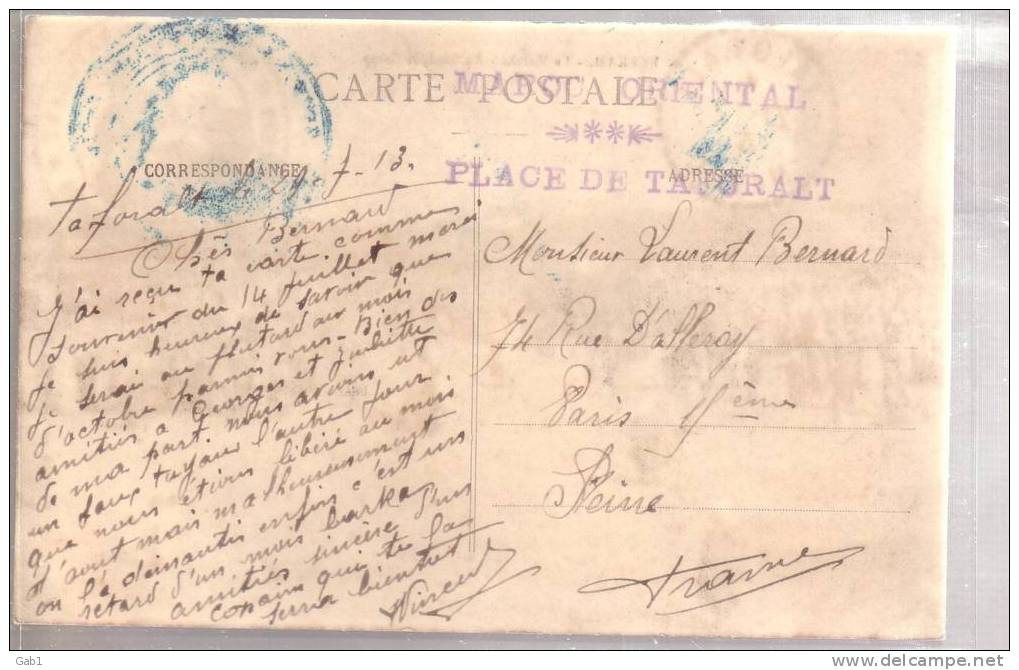 MAROC ORIENTAL
CARTE POSTALE
PLACE DE TAFORALT
CORRESPONDANCE
ADRESSE
Taforalt le 7-13.
Chèr Bernard
J'ai reçu ta carte comme
souvenir du 14 Juillet merci
je suis heureux de savoir que
je serai au plutard au mois
d'octobre parmis vous - Bien des
amitiés a Georges et Juliette
de ma part. nous avions ut
un faux tuyau l'autre jour.
que nous étions libéré au mois
d'aout mais malheureusement
on l'a démantis enfin c'est un
retard d'un mois barka
amitiés sincère d'un
copain qui te la
serra bientot
Vincent
Monsieur Laurent Bernard
74 Rue D'alleray
Paris 15ème
Seine
France
Gab1
www.delcampe.net